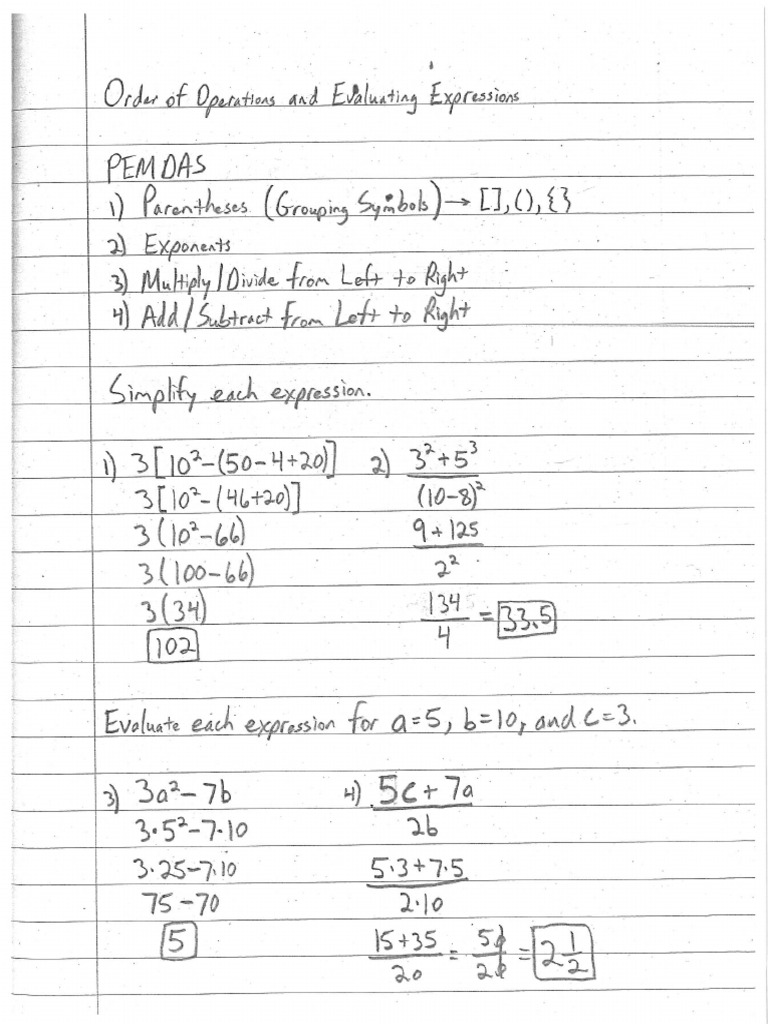 Order of Operations and Evaluating Expressions
PEMDAS
1) Parentheses (Grouping Symbols) → [], (), {}
2) Exponents
3) Multiply/Divide from Left to Right
4) Add/Subtract from Left to Right
Simplify each expression.
1) 3[10²-(50-4+20)]
3[10²-(46+20)]
3(10²-66)
3(100-66)
3(34)
102
2) 3²+5³
(10-8)²
9+125
2²
134
4
= 33.5
Evaluate each expression for a=5, b=10, and c=3.
3) 3a²-7b
3·5²-7·10
3·25-7·10
75-70
5
4) 5c+7a
2b
5·3+7·5
2·10
15+35
20
= 50
20
= 2 1/2